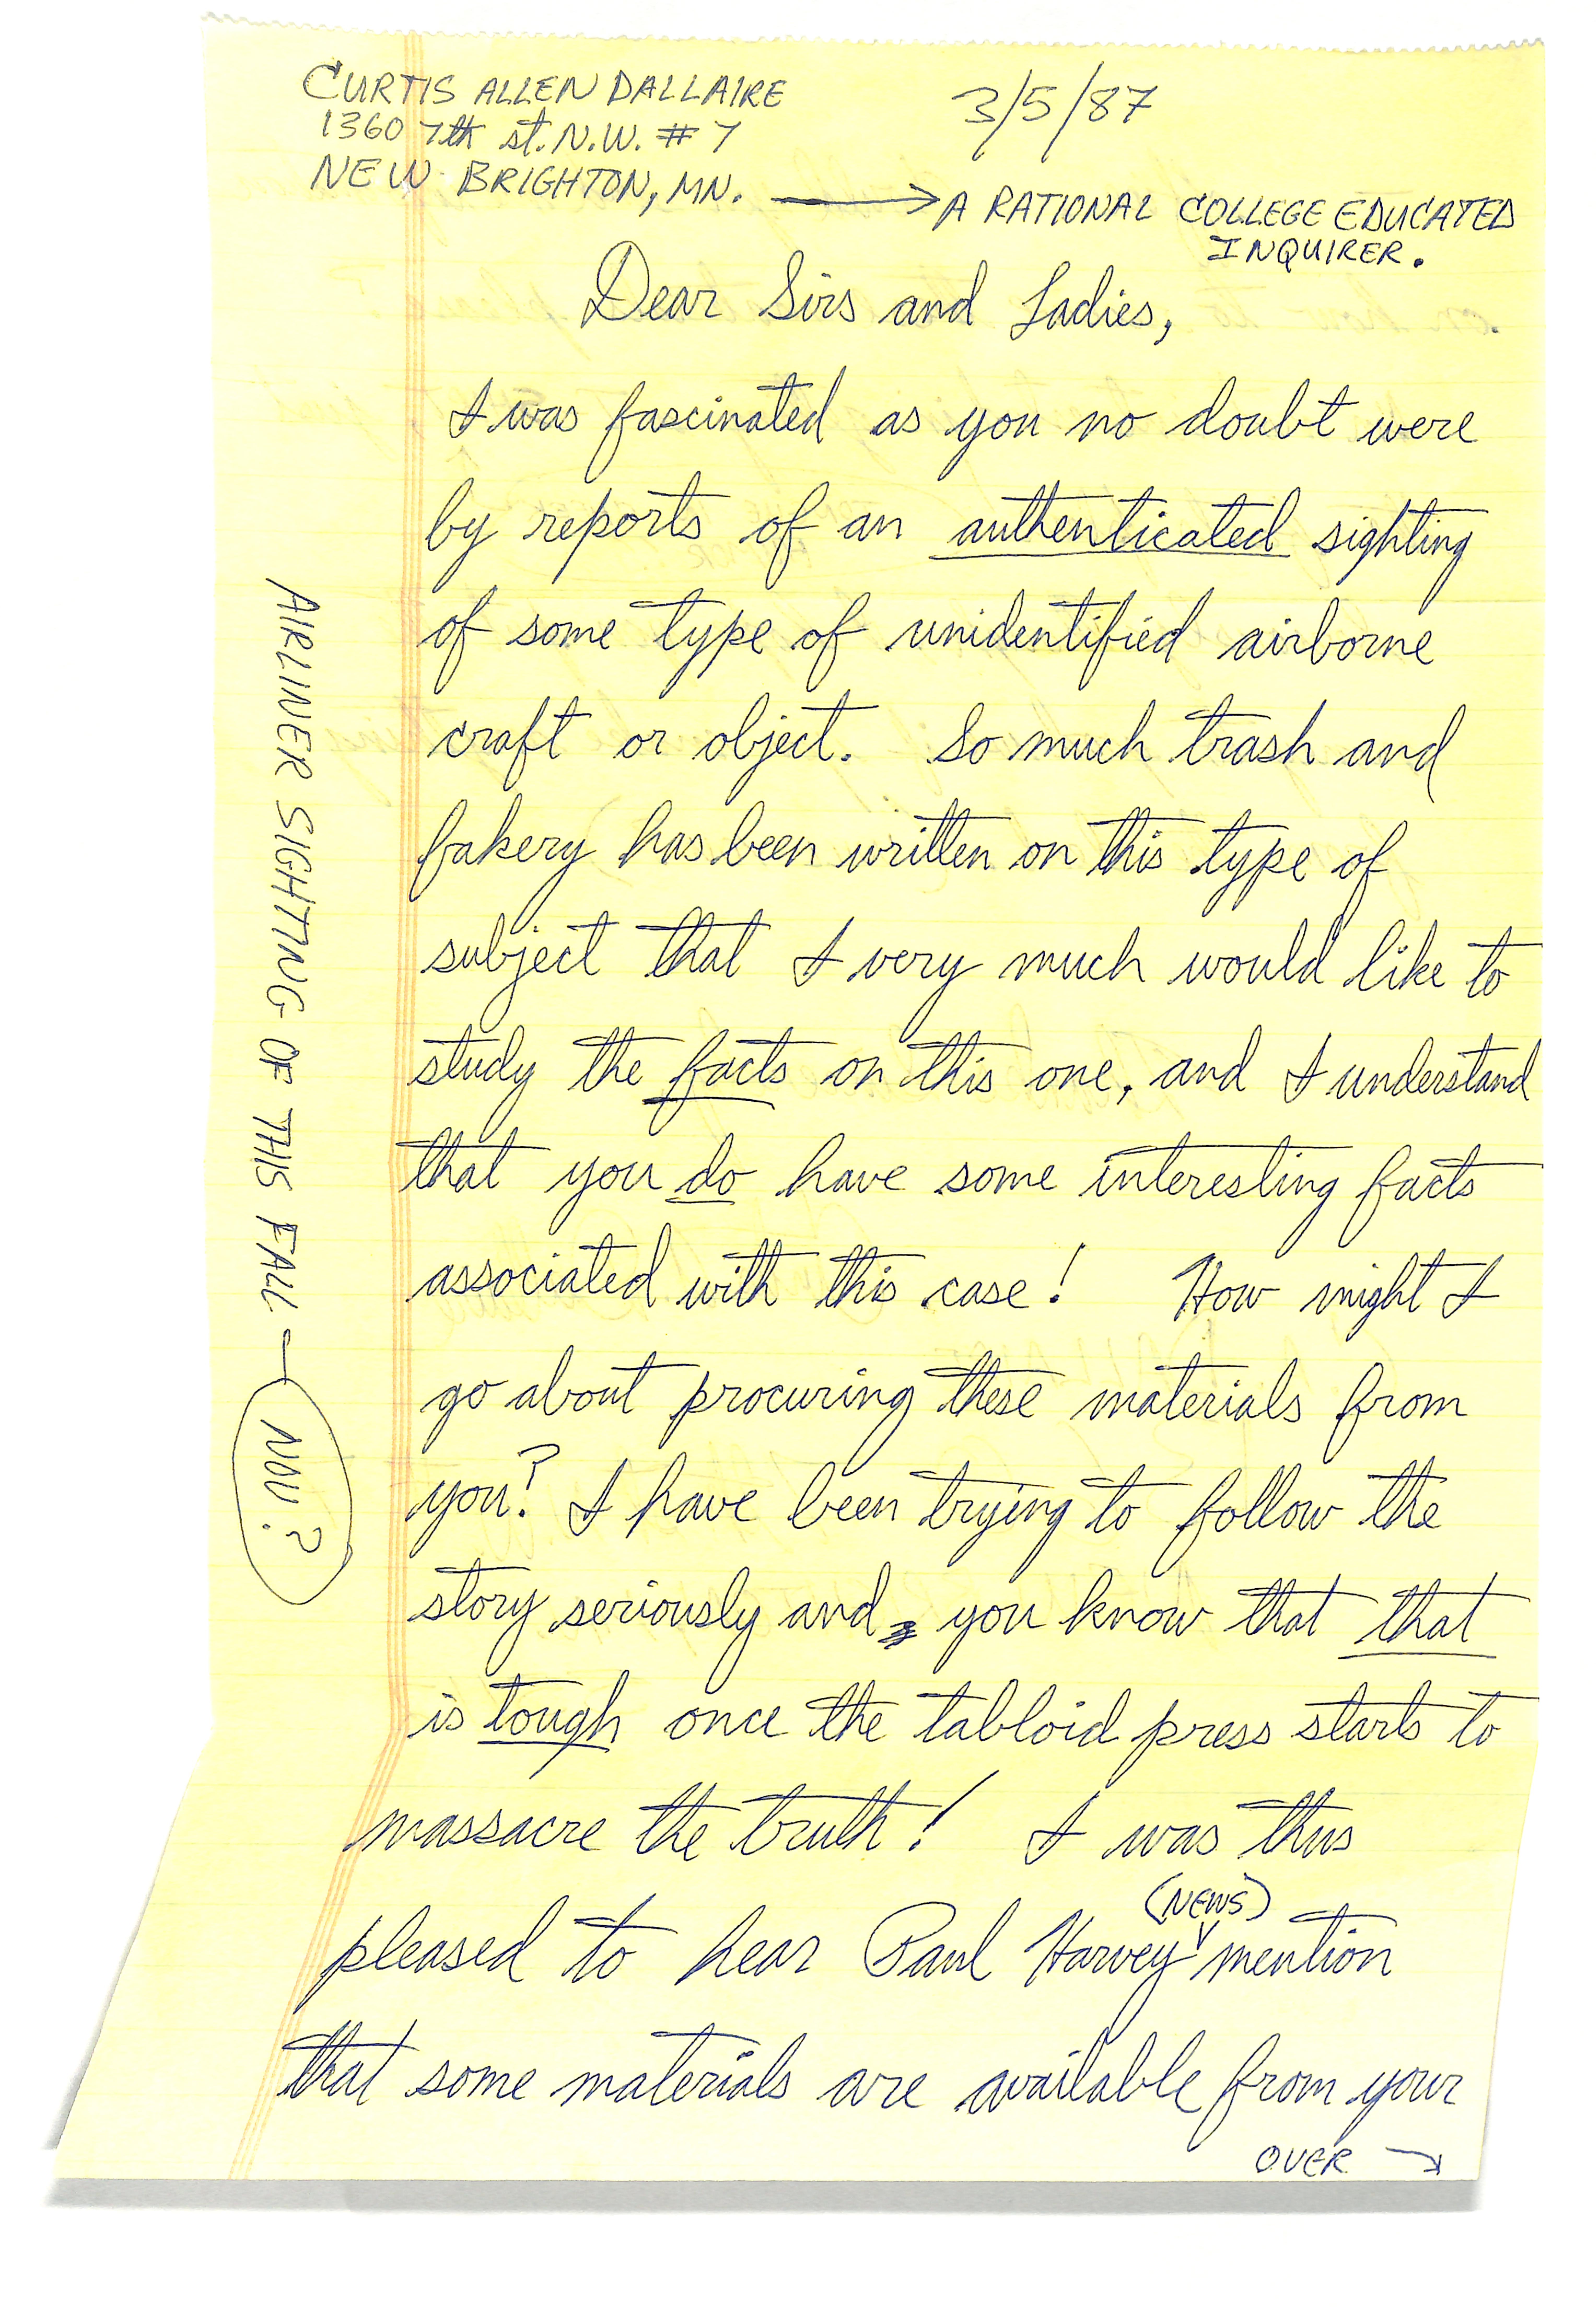 CURTIS ALLEN DALLAIRE
1360 7th st. N.W. # 7
NEW BRIGHTON, MN.
3/5/87
A RATIONAL COLLEGE EDUCATED
INQUIRER.
Dear Sirs and Ladies,
I was fascinated as you no doubt were
by reports of an authenticated sighting
of some type of unidentified airborne
craft or object. So much trash and
fakery has been written on this type of
subject that I very much would like to
study the facts on this one, and I understand
that you do have some interesting facts
associated with this case! How might I
go about procuring these materials from
you? I have been trying to follow the
story seriously and you know that that
is tough once the tabloid press starts to
massacre the truth! I was thus
pleased to hear Paul Harvey (NEWS) mention
that some materials are available from your
OVER →
AIRLINER SIGHTING OF THIS FALL — NOV?